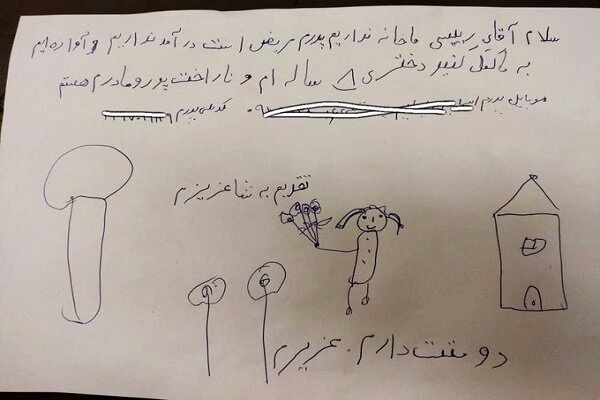 سلام آقای رییسی ما خانه نداریم پدرم مریض است درآمد نداریم و آواره ایم
به ما کمک کنید دختری ۸ ساله ام و ناراحت پدر و مادرم هستم
موبایل پدرم کد ملی پدرم
تقدیم به شما عزیزم
دوستت دارم. عزیزم